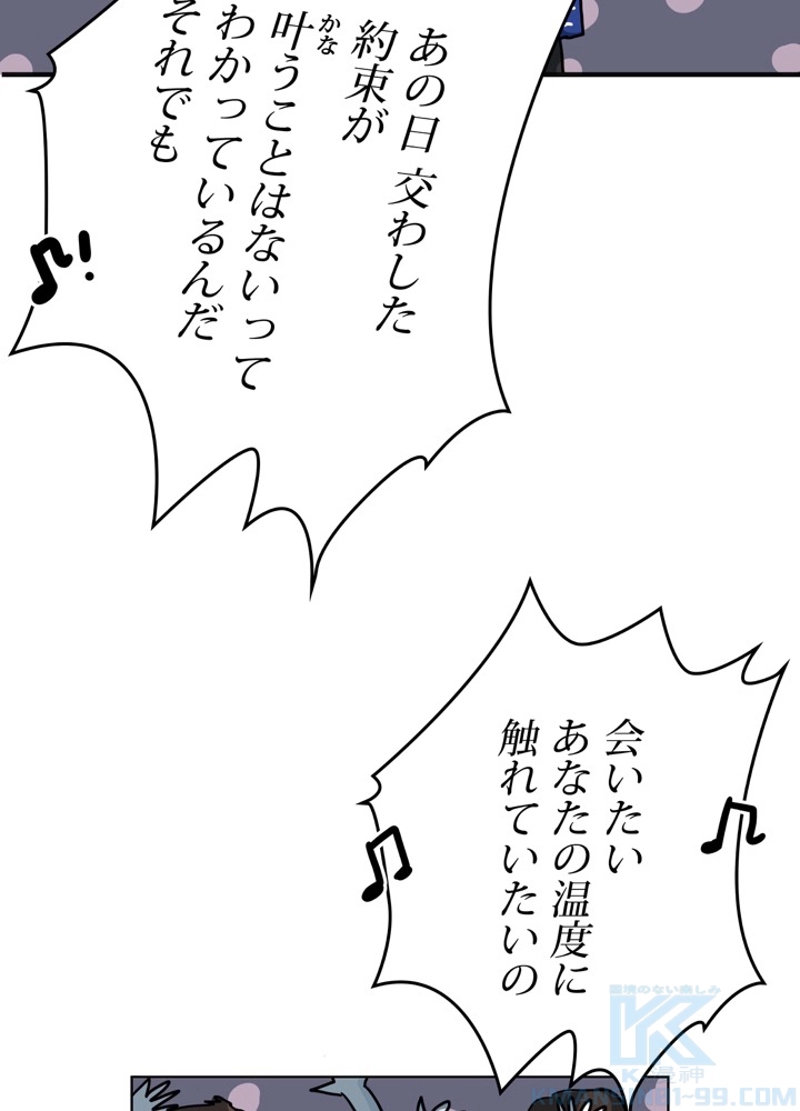 あの日 交わした
約束が
叶うことはないって
かな
わかっているんだ
それでも
会いたい
あなたの温度に
触れていたいの
限境のない楽しみ
K
K-漫神
KMANSHIN1-99.COM